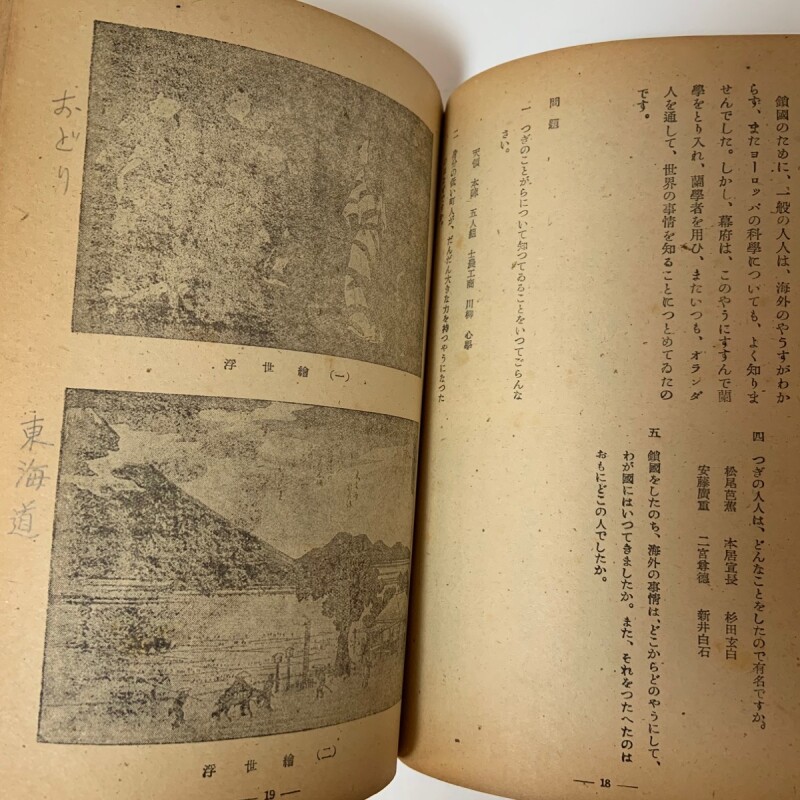 鎖國のために、一般の人人は、海外のやうすがわか
らず、またヨーロッパの科學についても、よく知りま
せんでした。しかし、幕府は、このやうにすすんで蘭
學をとり入れ、蘭學者を用ひ、またいつも、オランダ
人を通して、世界の事情を知ることにつとめてゐたの
です。
問題
一 つぎのことがらについて知つてゐることをいつてごらんな
さい。
天領 本陣 五人組 士農工商 川柳 心學
二 身分の低い町人が、だんだん大きな力を持つやうになつた
四 つぎの人人は、どんなことをしたので有名ですか。
松尾芭蕉 本居宣長 杉田玄白
安藤廣重 二宮尊德 新井白石
五 鎖國をしたのち、海外の事情は、どこからどのやうにして、
わが國にはいつてきましたか。また、それをつたへたのは
おもにどこの人でしたか。
— 18 —
おどり
浮世繪(一)
東海道
浮世繪(二)
— 19 —